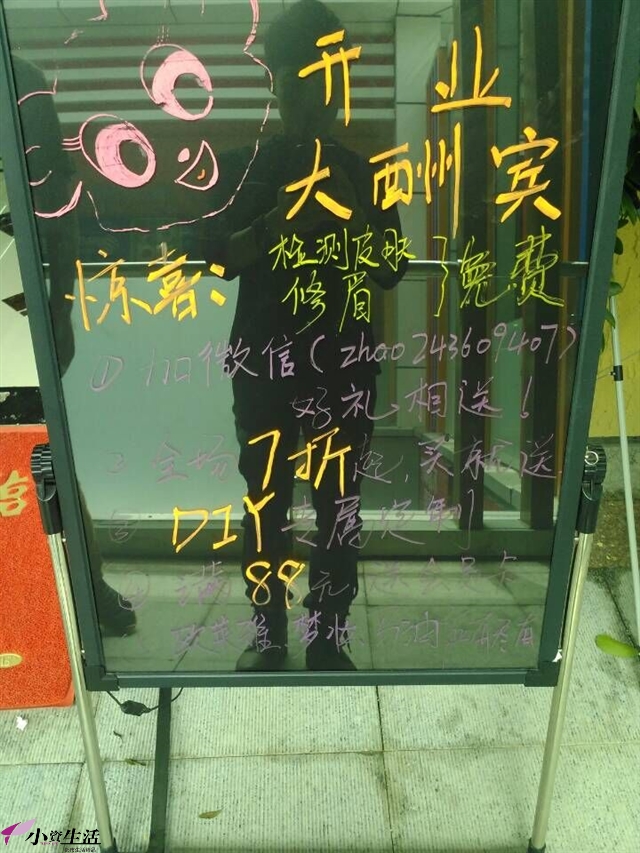 开业
大酬宾
惊喜：
检测皮肤
修眉
}免费
①加微信(zhao243609407)
好礼相送！
② 全场7折起，买就送
③ DIY专属定制
④ 满88元送会员卡
欧莱雅、梦妆
小资生活